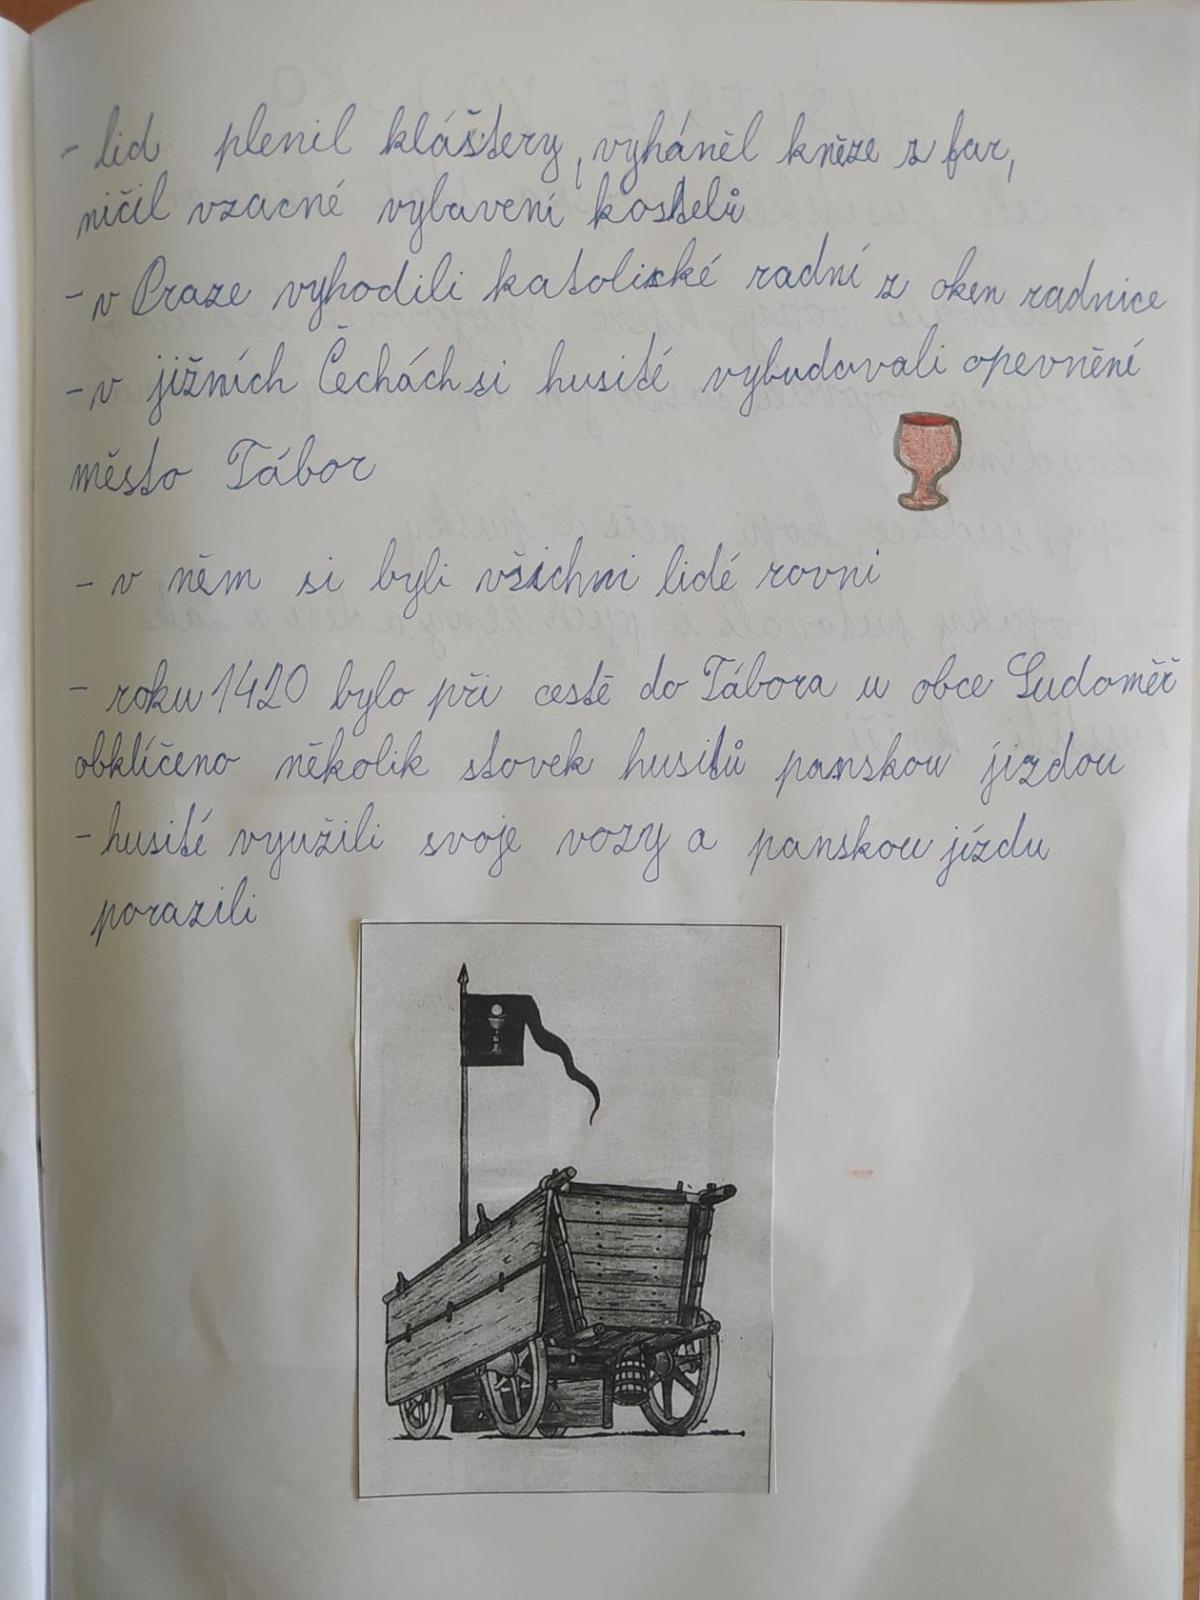 - lid plenil kláštery, vyháněl kněze z far,
ničil vzacné vybavení kostelů
- v Praze vyhodili katolické radní z oken radnice
- v jižních Čechách si husité vybudovali opevnění
město Tábor
- v něm si byli všichni lidé rovni
- roku 1420 bylo při cestě do Tábora u obce Sudoměř
obklíčeno několik stovek husitů panskou jizdou
- husité využili svoje vozy a panskou jízdu
porazili